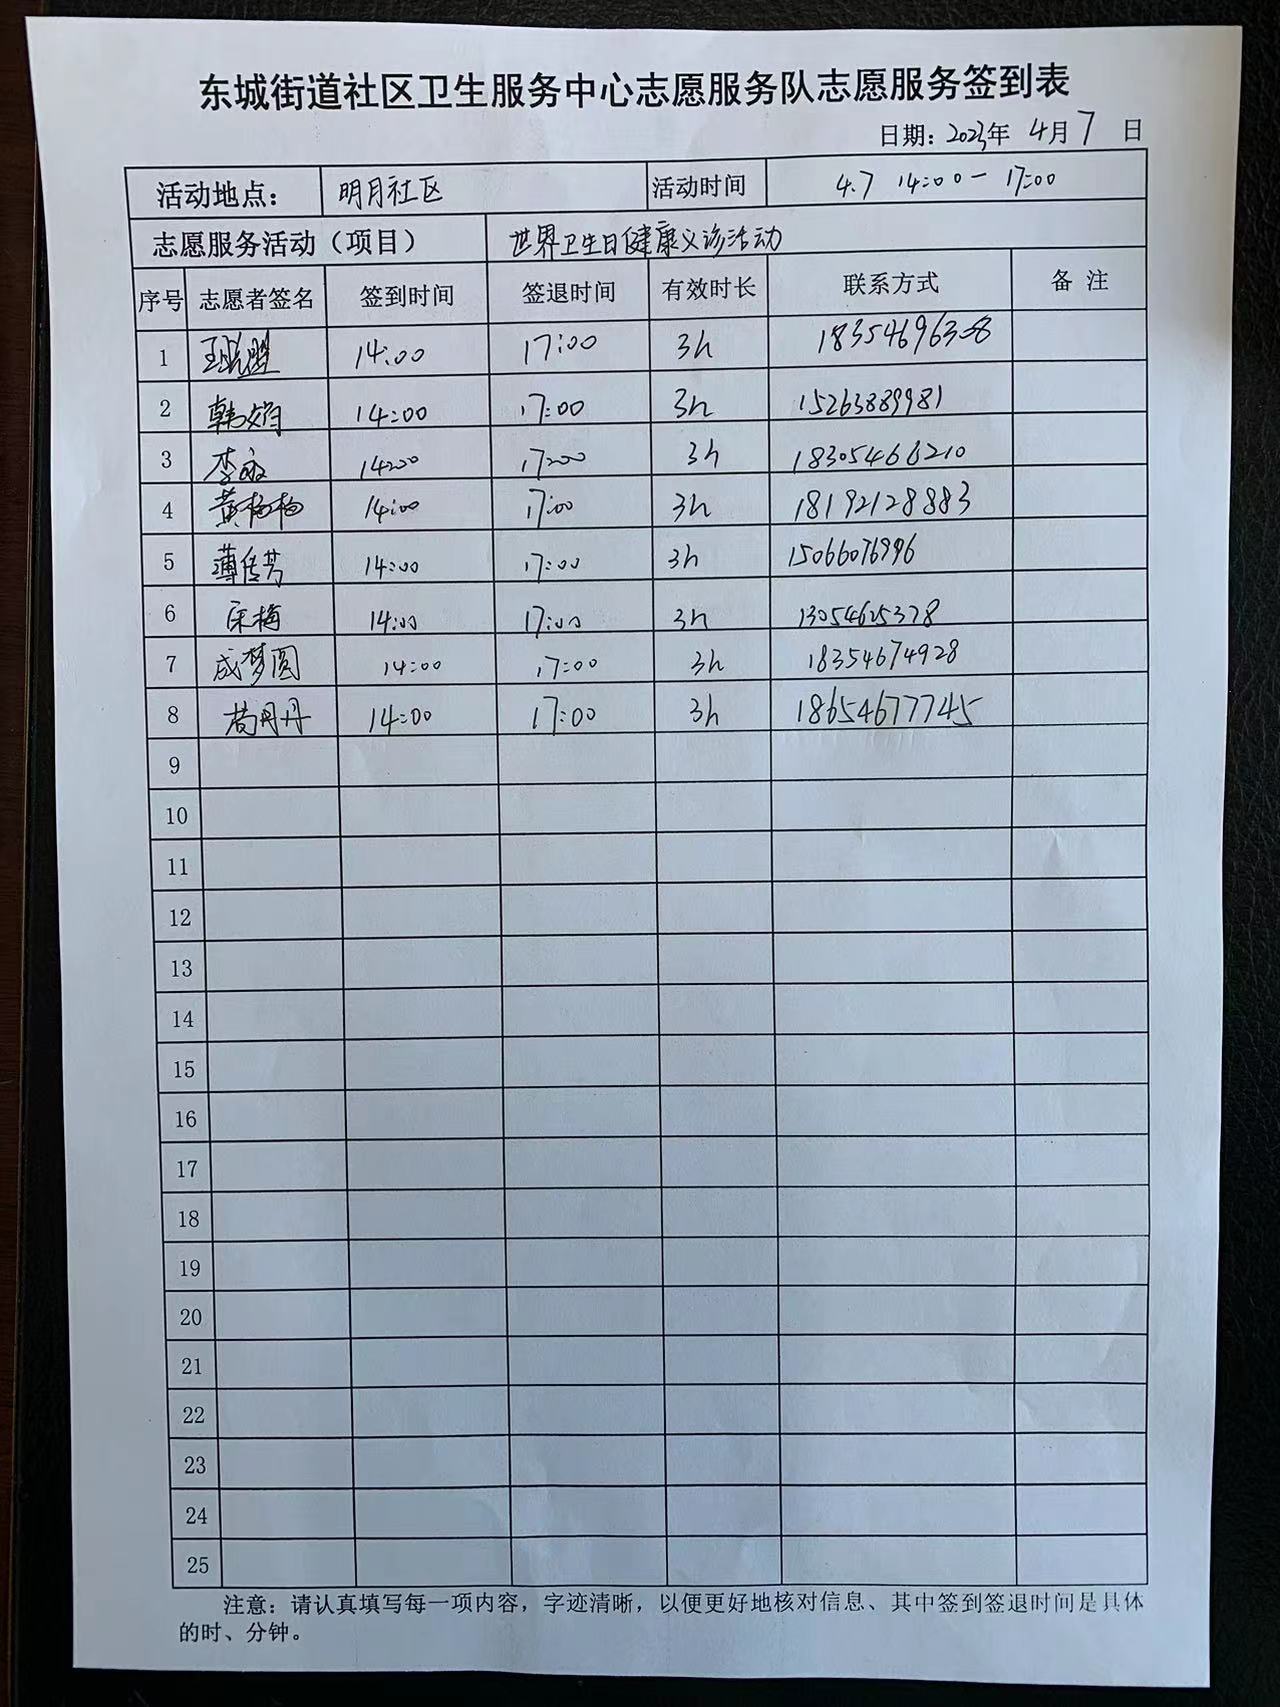 东城街道社区卫生服务中心志愿服务队志愿服务签到表
日期：2023年 4月 7 日
活动地点： 明月社区 活动时间 4.7 14:00-17:00
志愿服务活动（项目） 世界卫生日健康义诊活动
序号 志愿者签名 签到时间 签退时间 有效时长 联系方式 备 注
1 14:00 17:00 3h
2 韩娟 14:00 17:00 3h 15263889981
3 14:00 17:00 3h 18305466210
4 黄梅梅 14:00 17:00 3h 18192128883
5 薄传芳 14:00 17:00 3h 15066076996
6 宋梅 14:00 17:00 3h 13054625378
7 成梦圆 14:00 17:00 3h 18354674928
8 苟丹丹 14:00 17:00 3h 18654677745
9
10
11
12
13
14
15
16
17
18
19
20
21
22
23
24
25
注意：请认真填写每一项内容，字迹清晰，以便更好地核对信息、其中签到签退时间是具体
的时、分钟。